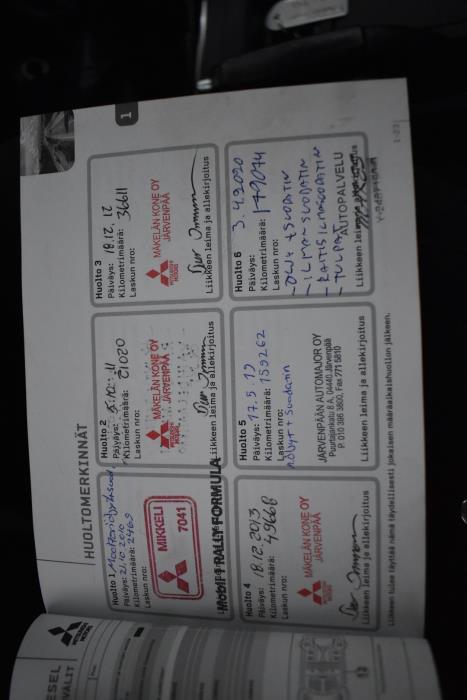 HUOLTOMERKINNÄT
1
Huolto 1
Päiväys: 21.10 2010
Kilometrimäärä: 2469
Laskun nro:
MIKKELI
7041
Mobil 1 RALLY FORMULA
Huolto 2
Päiväys:
Kilometrimäärä: 21020
Laskun nro:
MÄKELÄN KONE OY
JÄRVENPÄÄ
Liikkeen leima ja allekirjoitus
Huolto 3
Päiväys: 18.12.12
Kilometrimäärä: 36611
Laskun nro:
MÄKELÄN KONE OY
JÄRVENPÄÄ
MITSUBISHI
MOTORS
Liikkeen leima ja allekirjoitus
Huolto 4
Päiväys: 18.12.2013
Kilometrimäärä: 49668
Laskun nro:
MÄKELÄN KONE OY
JÄRVENPÄÄ
MITSUBISHI
MOTORS
Liikkeen leima ja allekirjoitus
Huolto 5
Päiväys: 17.5.19
Kilometrimäärä: 159262
Laskun nro:
JÄRVENPÄÄN AUTOMAJOR OY
Puurtajankatu 8 A, 04440 Järvenpää
P. 010 396 3800, Fax 771 5810
Liikkeen leima ja allekirjoitus
Huolto 6
Päiväys: 3.4.2020
Kilometrimäärä: 179074
Laskun nro:
- ÖLJY + SUODATIN
- ILMANSUODATIN
- RAITISILMASUODATIN
- TULPAT
AUTOPALVELU
Liikkeen leima ja allekirjoitus
Liikkeen tulee täyttää nämä täydellisesti jokaisen määräaikaishuollon jälkeen.
1-23
MITSUBISHI
MOTORS